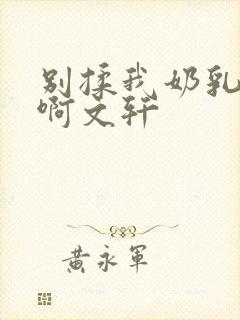 别揉我奶乳
啊文轩
黄永军